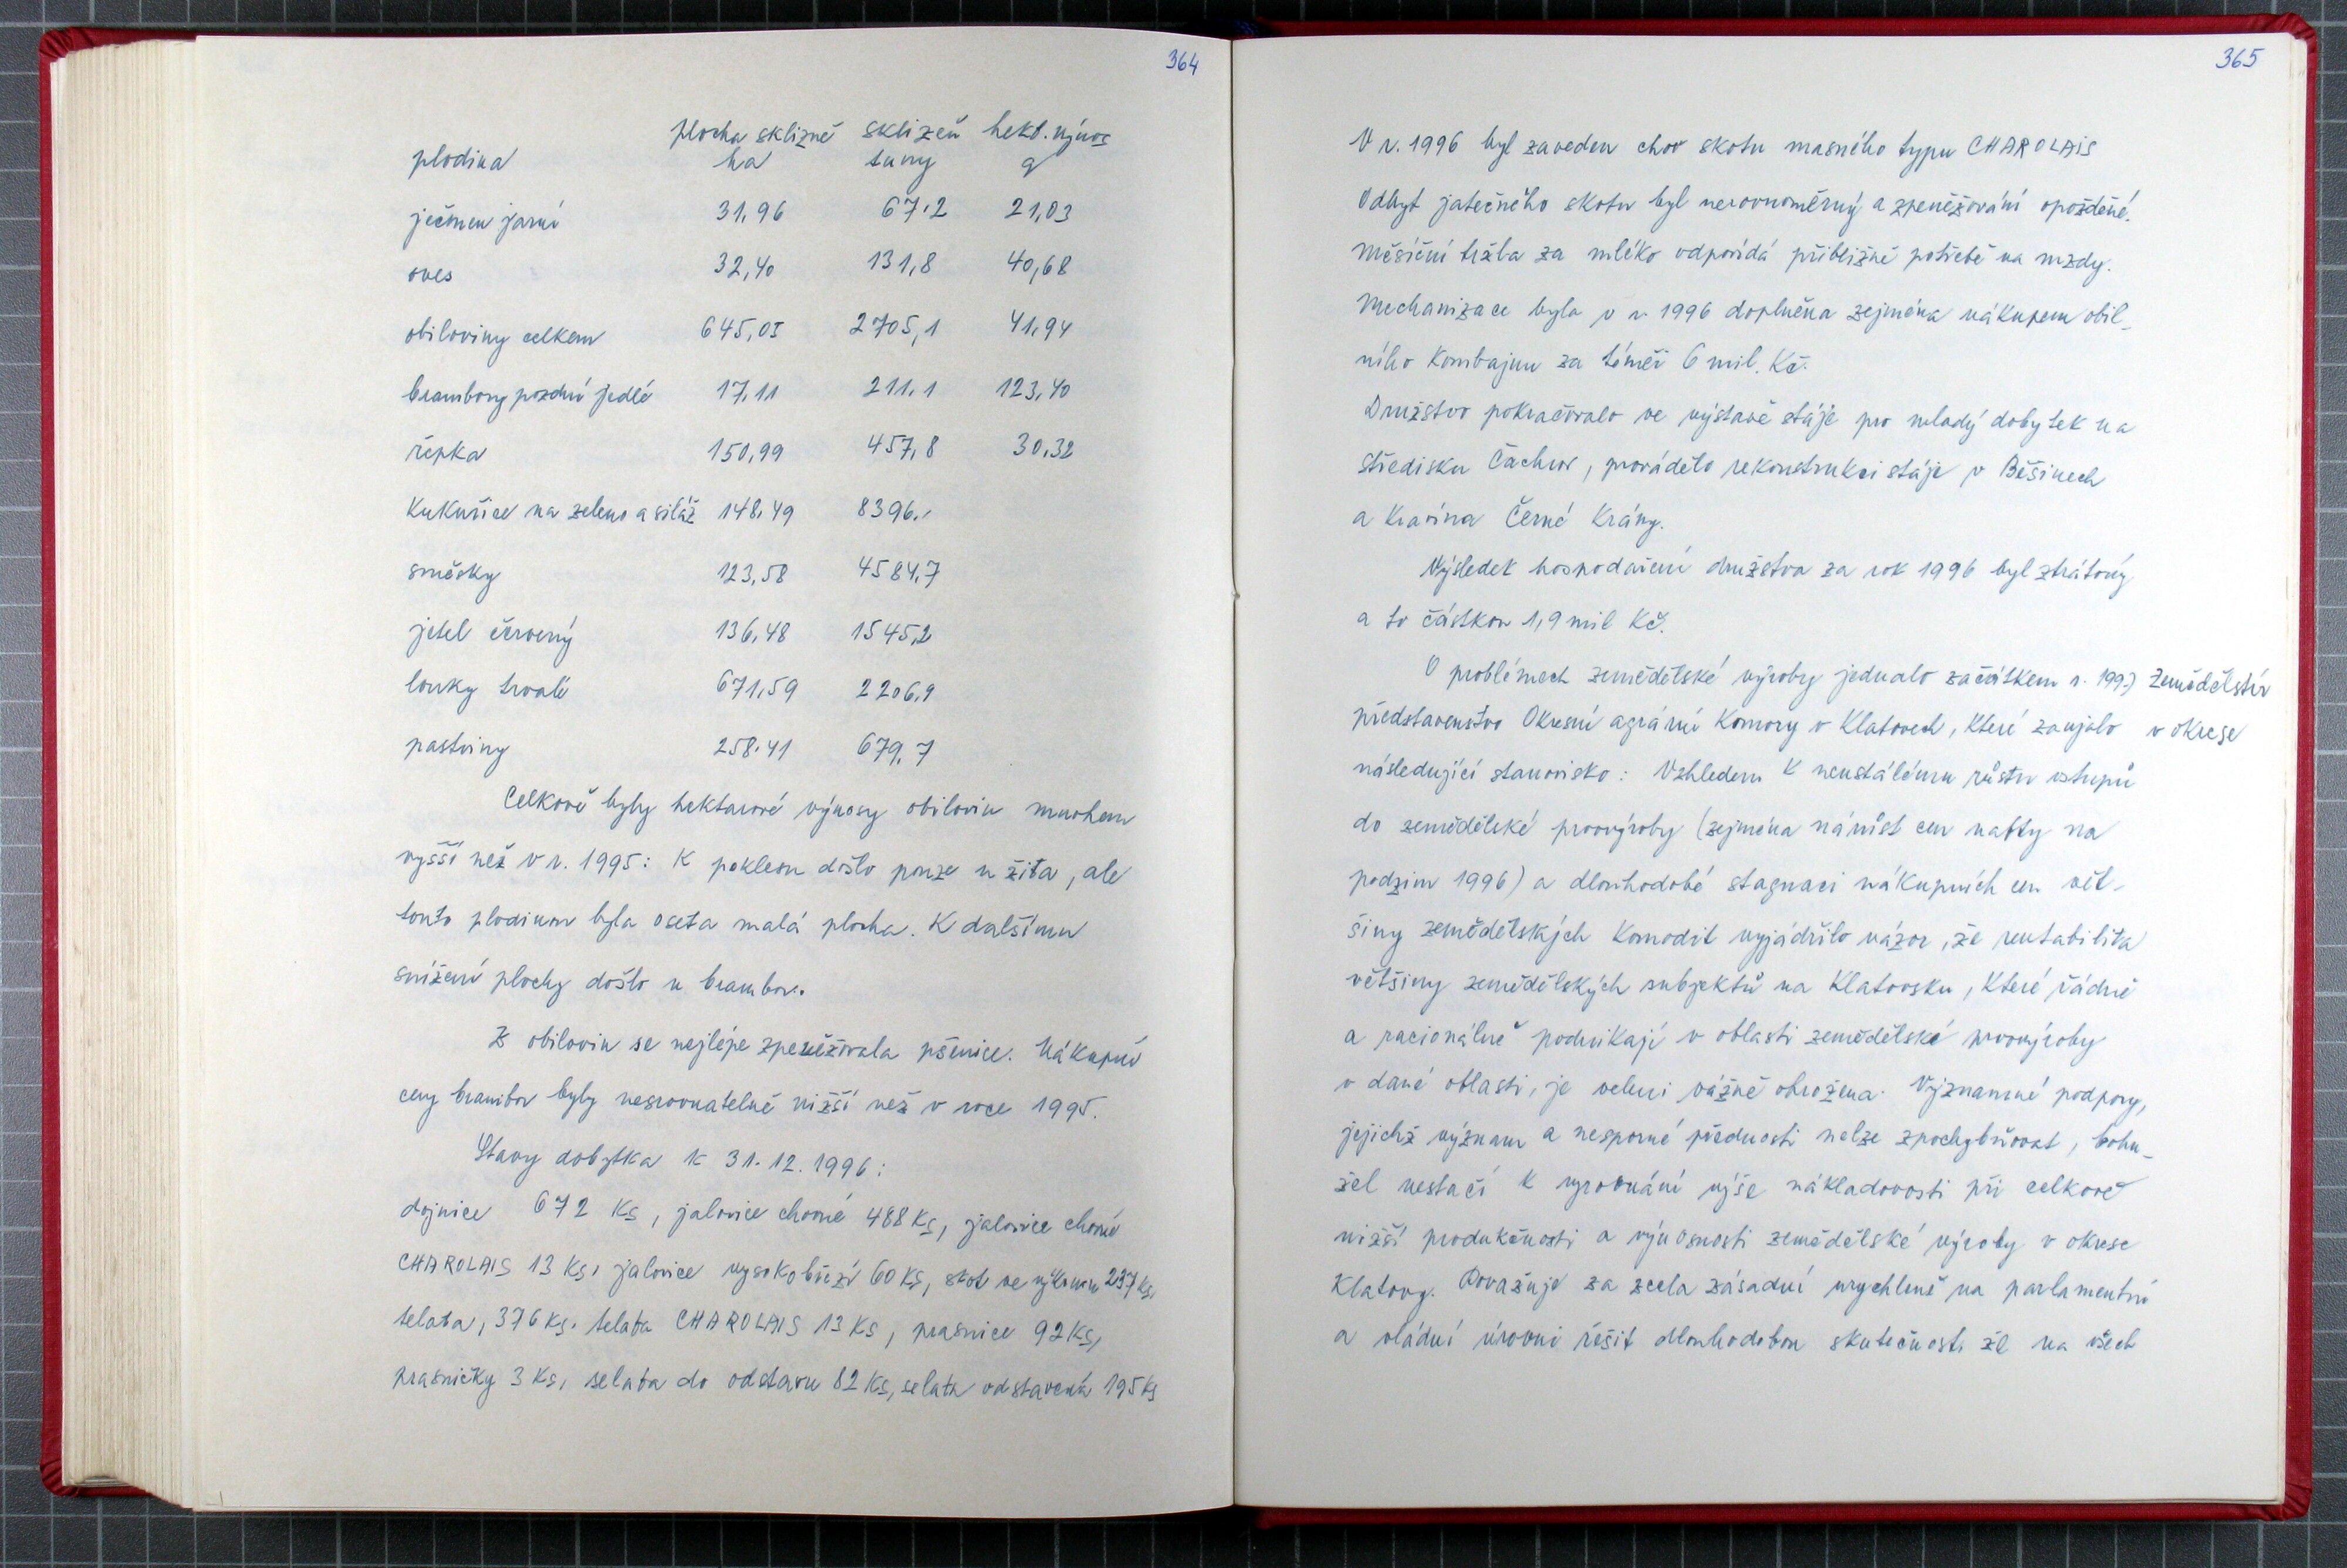 364
plocha sklizně sklizeň hekt. výnos
plodina ha tuny q
ječmen jarní 31,96 67,2 21,03
oves 32,40 131,8 40,68
obiloviny celkem 645,05 2705,1 41,94
brambory pozdní jedlé 17,11 211,1 123,40
řepka 150,99 457,8 30,32
Kukuřice na zeleno a siláž 148,49 8396,-
směsky 123,58 4584,7
jetel červený 136,48 1545,2
louky trvalé 671,59 2206,9
pastviny 258,41 679,7
Celkově byly hektarové výnosy obilovin mnohem
vyšší než v r. 1995: K poklesu došlo pouze u žita, ale
touto plodinou byla oseta malá plocha. K dalšímu
snížení plochy došlo u brambor.
Z obilovin se nejlépe zpeněžovala pšenice. Nákupní
ceny brambor byly nesrovnatelně nižší než v roce 1995.
Stavy dobytka k 31.12.1996:
dojnice 672 Ks, jalovice chovné 488 Ks, jalovice chovné
CHAROLAIS 13 Ks, jalovice vysokobřezí 60 Ks, skot ve výkrmu 237 Ks,
telata, 376 Ks. telata CHAROLAIS 13 Ks, prasnice 92 Ks,
prasničky 3 Ks, selata do odstavu 82 Ks, selata odstavená 195 Ks
365
V r. 1996 byl zaveden chov skotu masného typu CHAROLAIS
Odbyt jatečného skotu byl nerovnoměrný a zpeněžování opožděné.
Měsíční tržba za mléko odpovídá přibližně potřebě na mzdy.
Mechanizace byla v r. 1996 doplněna zejména nákupem obil-
ního Kombajnu za téměř 6 mil. Kč.
Družstvo pokračovalo ve výstavě stáje pro mladý dobytek na
středisku Čachrov, provádělo rekonstrukci stáje v Běšinech
a Kravína Černé Krávy.
Výsledek hospodaření družstva za rok 1996 byl ztrátový
a to částkou 1,9 mil Kč.
O problémech zemědělské výroby jednalo začátkem r. 1997 Zemědělství
představenstvo Okresní agrární Komory v Klatovech, Které zaujalo v okrese
následující stanovisko: Vzhledem k neustálému růstu vstupů
do zemědělské prvovýroby (zejména nárůst cen nafty na
podzim 1996) a dlouhodobé stagnaci nákupních cen vět-
šiny zemědělských Komodit vyjádřilo názor, že rentabilita
většiny zemědělských subjektů na Klatovsku, Které řádně
a racionálně podnikají v oblasti zemědělské prvovýroby
v dané oblasti, je velmi vážně ohrožena. Významné podpory,
jejichž význam a nesporné přednosti nelze zpochybňovat, bohu-
žel nestačí k vyrovnání výše nákladovosti při celkově
nižší produkčnosti a výnosnosti zemědělské výroby v okrese
Klatovy. Považuje za zcela zásadní urychleně na parlamentní
a vládní úrovni řešit dlouhodobou skutečnost, že na všech